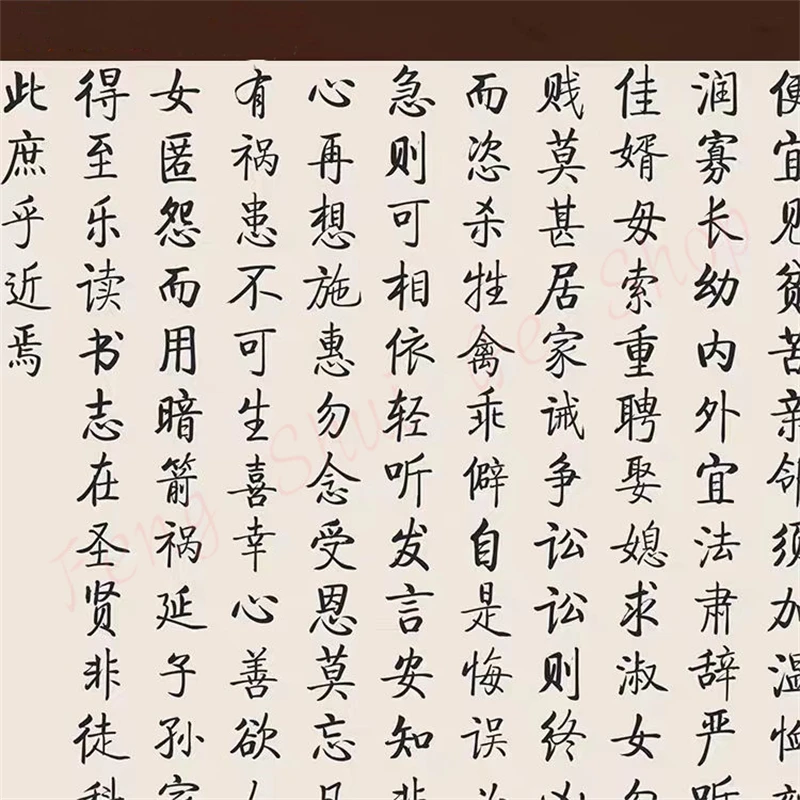 便宜见贫苦亲邻须加温恤
润寡长幼内外宜法肃辞严听
佳婿毋索重聘娶媳求淑女勿
贱莫甚居家诫争讼讼则终凶
而恣杀牲禽乖僻自是悔误
急则可相依轻听发言安知非
心再想施惠勿念受恩莫忘凡
有祸患不可生喜幸心善欲人
女匿怨而用暗箭祸延子孙家
得至乐读书志在圣贤非徒科
此庶乎近焉
Feng Shui Shop